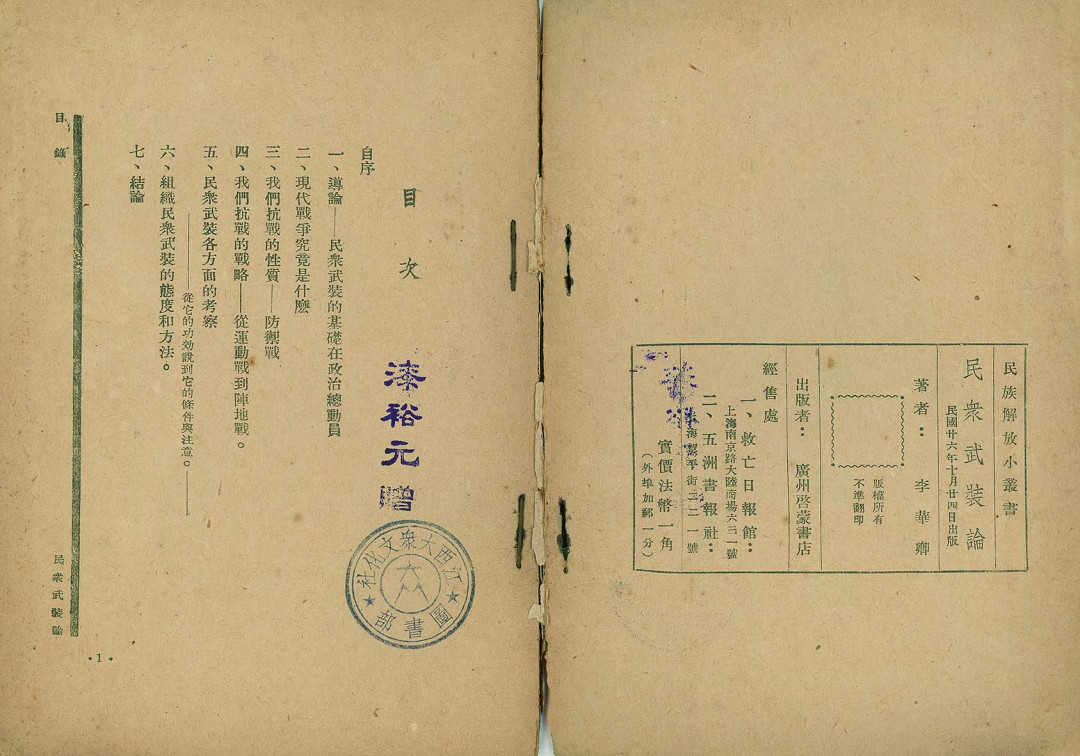 民族解放小叢書
民衆武裝論
民國廿六年十月廿四日出版
著者：李華卿
版權所有
不準翻印
出版者：廣州啓蒙書店
經售處
一、救亡日報館：
上海南京路大陸商場六三一號
二、五洲書報社：
號
實價法幣一角
（外埠加郵一分）
目次
自序
一、導論——民衆武裝的基礎在政治總動員
二、現代戰爭究竟是什麽
三、我們抗戰的性質——防禦戰
四、我們抗戰的戰略——從運動戰到陣地戰。
五、民衆武裝各方面的考察
——從它的功効說到它的條件與注意。——
六、組織民衆武裝的態度和方法。
七、結論
漆裕元贈
江西大衆文化社
圖書部
目錄
民衆武裝論
·1·